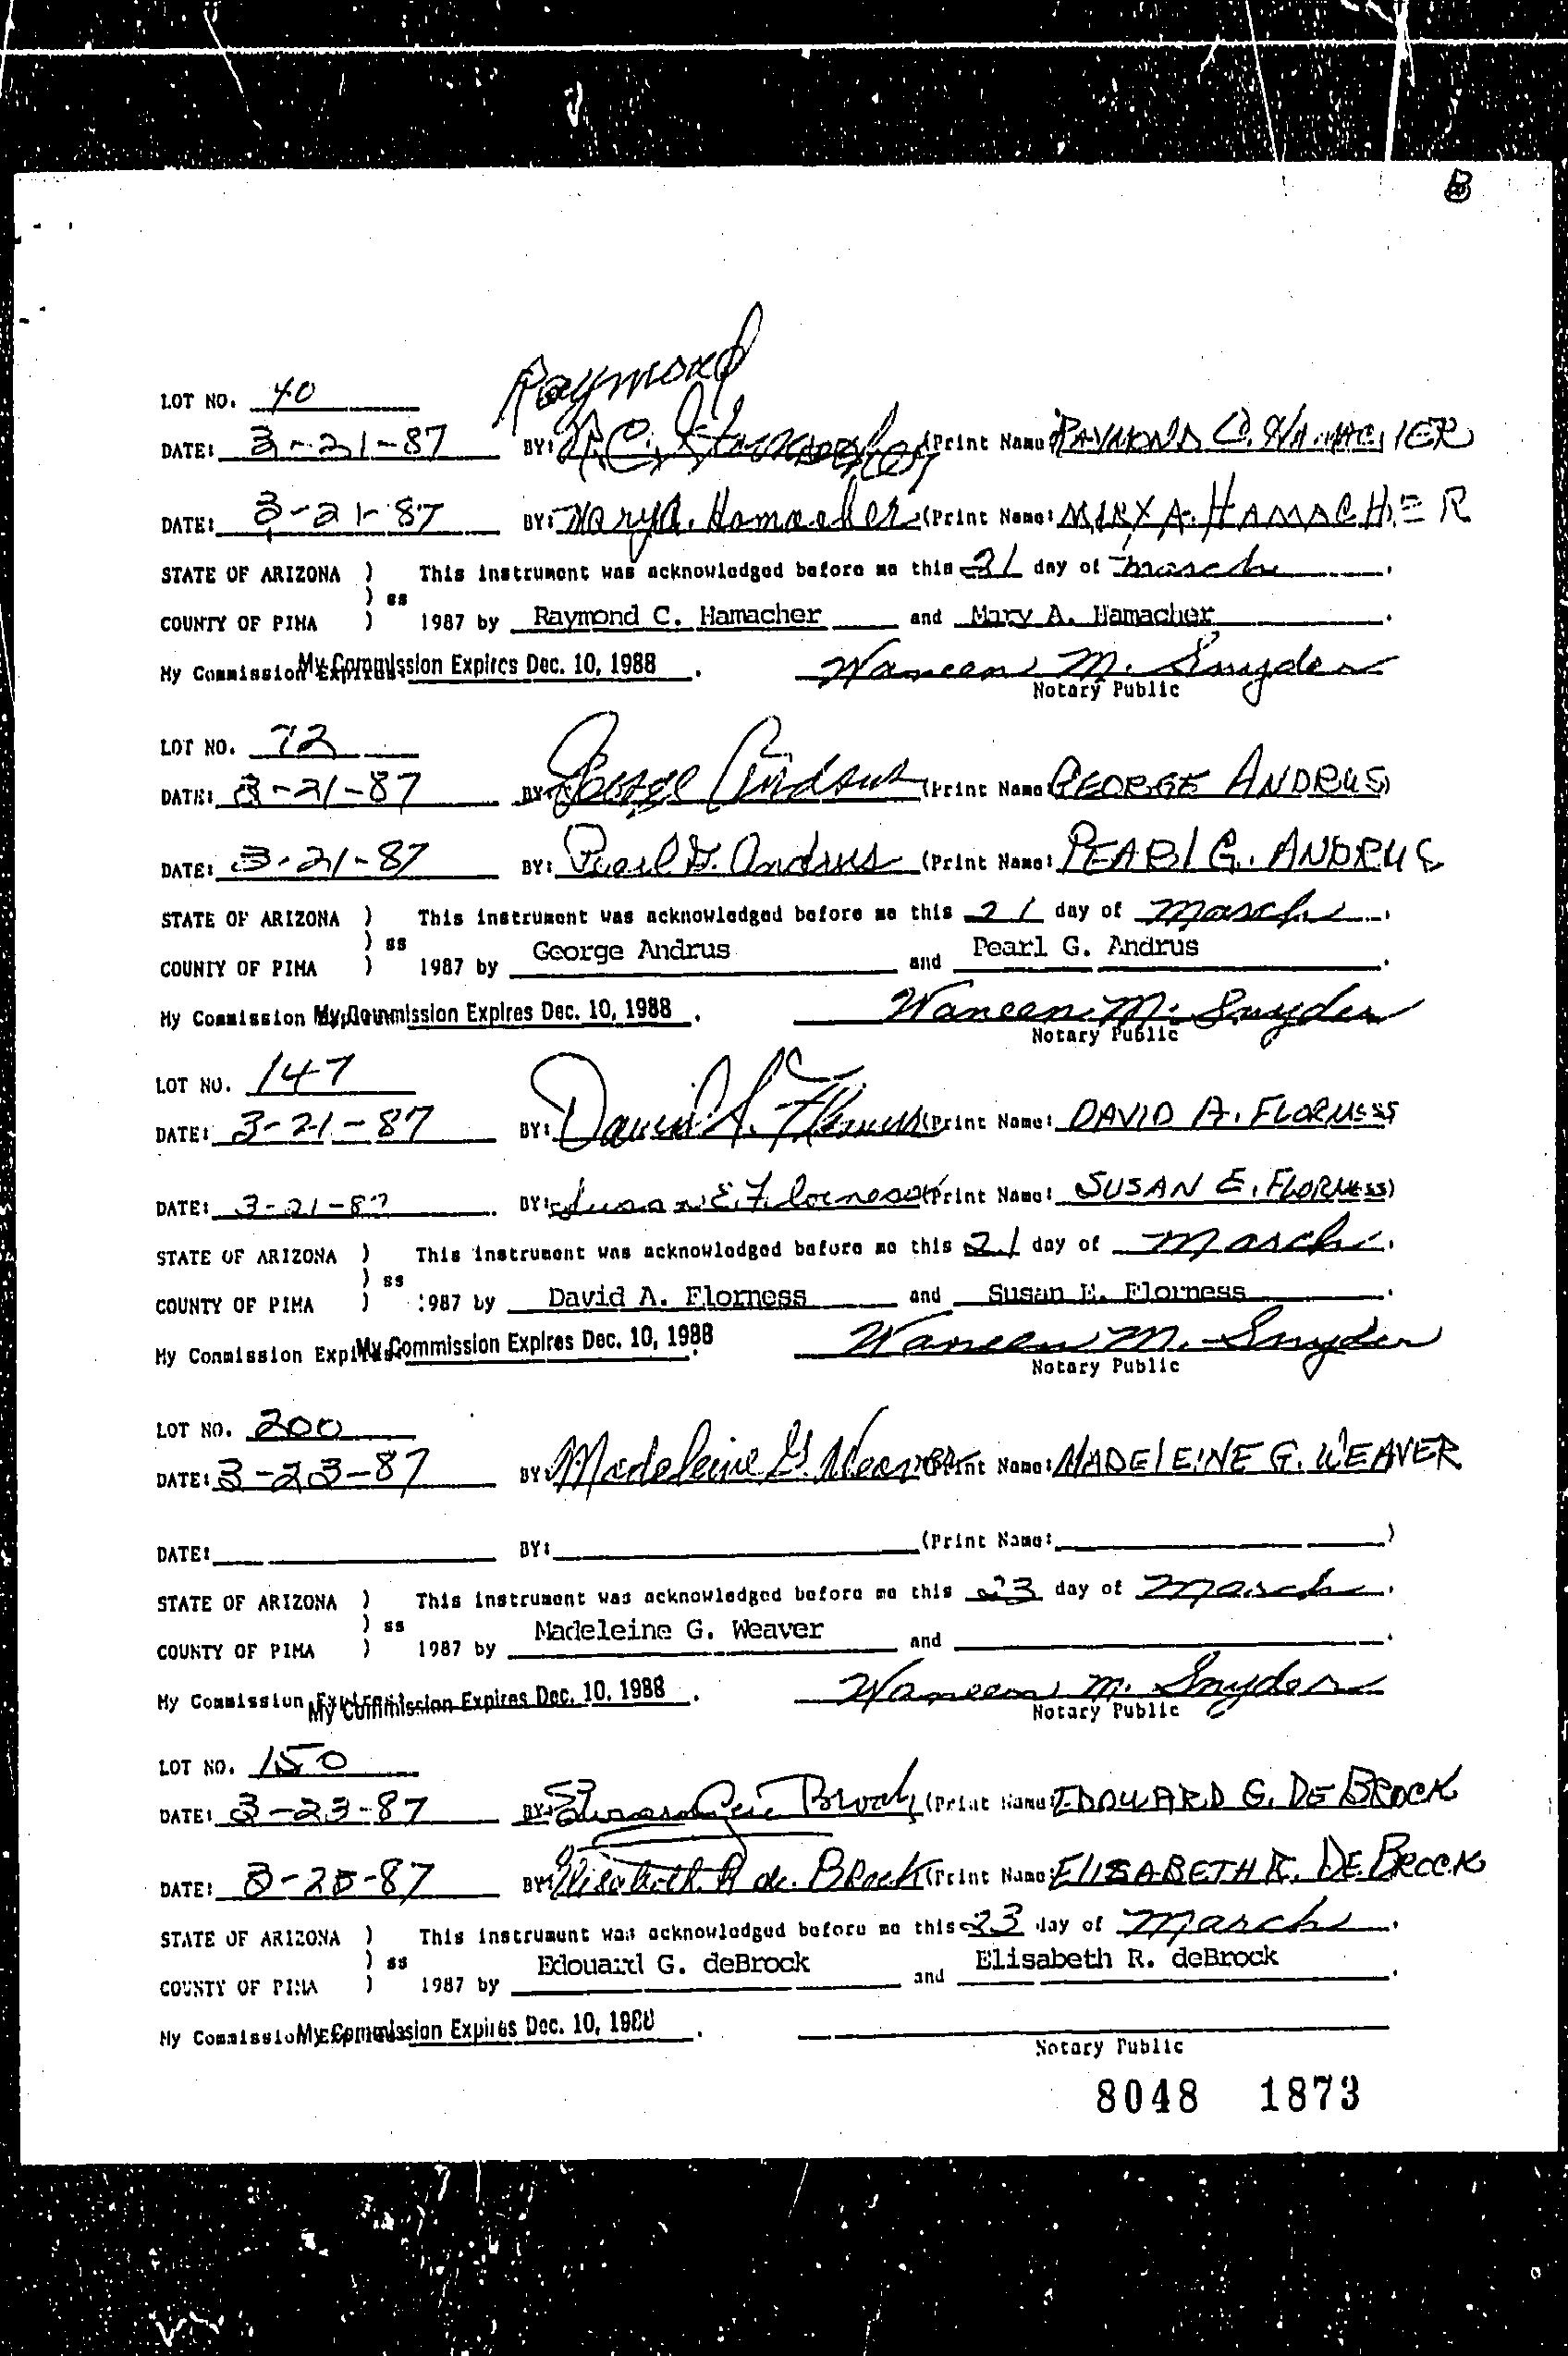 Raymond
LOT NO. 40
DATE: 3-21-87 BY: R.C. Hamacher (Print Name: RAYMOND C. HAMACHER
DATE: 3-21-87 BY: Mary A. Hamacher (Print Name: MARY A. HAMACHER
STATE OF ARIZONA ) This instrument was acknowledged before me this 21 day of March.
) ss
COUNTY OF PIMA ) 1987 by Raymond C. Hamacher and Mary A. Hamacher.
My Commission Expires: My Commission Expires Dec. 10, 1988. Waneen M. Snyder
Notary Public
LOT NO. 72
DATE: 3-21-87 BY: George Andrus (Print Name: GEORGE ANDRUS)
DATE: 3-21-87 BY: Pearl G. Andrus (Print Name: PEARl G. ANDRUS
STATE OF ARIZONA ) This instrument was acknowledged before me this 21 day of March.
) ss
COUNTY OF PIMA ) 1987 by George Andrus and Pearl G. Andrus.
My Commission Expires: My Commission Expires Dec. 10, 1988. Waneen M. Snyder
Notary Public
LOT NO. 147
DATE: 3-21-87 BY: David A. Florness (Print Name: DAVID A. FLORNESS
DATE: 3-21-87 BY: Susan E. Florness (Print Name: SUSAN E. FLORNESS)
STATE OF ARIZONA ) This instrument was acknowledged before me this 21 day of March.
) ss
COUNTY OF PIMA ) 1987 by David A. Florness and Susan E. Florness.
My Commission Expires: My Commission Expires Dec. 10, 1988. Waneen M. Snyder
Notary Public
LOT NO. 200
DATE: 3-23-87 BY: Madeleine G. Weaver (Print Name: MADElEINE G. WEAVER
DATE: BY: (Print Name: )
STATE OF ARIZONA ) This instrument was acknowledged before me this 23 day of March.
) ss
COUNTY OF PIMA ) 1987 by Madeleine G. Weaver and .
My Commission Expires: My Commission Expires Dec. 10, 1988. Waneen M. Snyder
Notary Public
LOT NO. 150
DATE: 3-23-87 BY: Brock (Print Name: EDOUARD G. DE BROCK
DATE: 3-23-87 BY: Elisabeth R de Brock (Print Name: ElISABETH R. DE BROCK
STATE OF ARIZONA ) This instrument was acknowledged before me this 23 day of March.
) ss
COUNTY OF PIMA ) 1987 by Edouard G. deBrock and Elisabeth R. deBrock.
My Commission Expires: My Commission Expires Dec. 10, 1988.
Notary Public
8048 1873